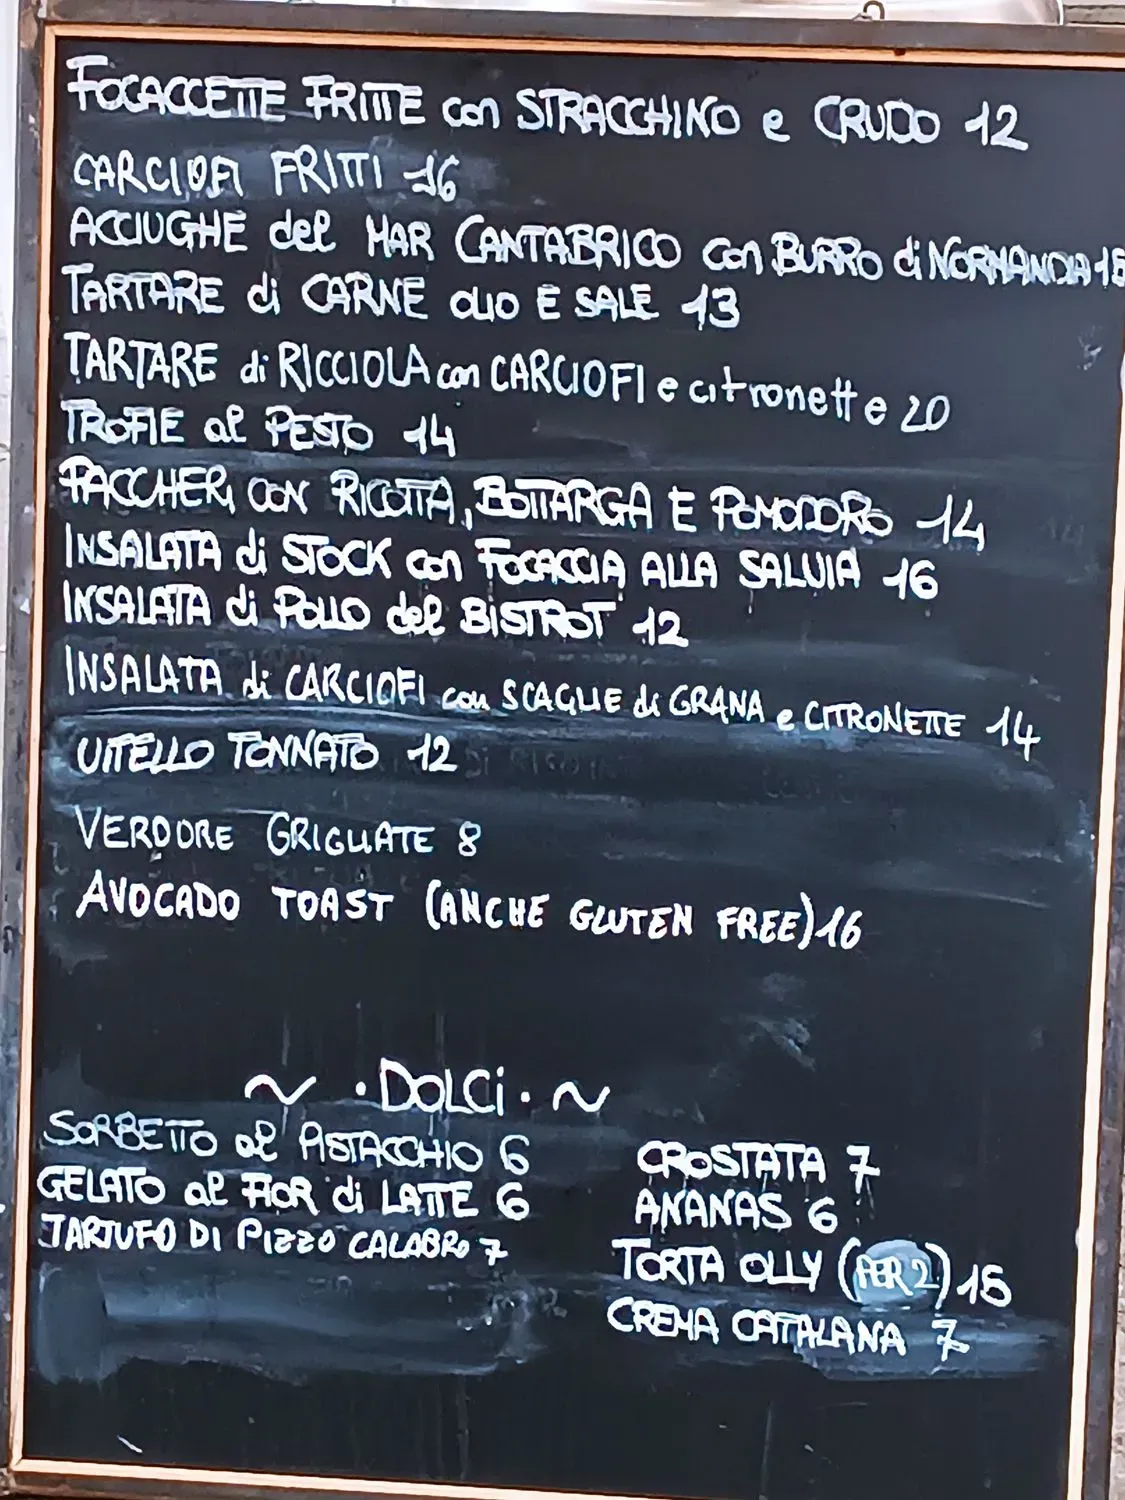 FOCACCETTE FRITTE con STRACCHINO e CRUDO 12
CARCIOFI FRITTI 16
ACCIUGHE del MAR CANTABRICO con BURRO di NORMANDIA
TARTARE di CARNE OLIO E SALE 13
TARTARE di RICCIOLA con CARCIOFI e citronette 20
TROFIE al PESTO 14
PACCHERI CON RICOTTA, BOTTARGA E POMODORO 14
INSALATA di STOCK con FOCACCIA ALLA SALVIA 16
INSALATA di POLLO del BISTROT 12
INSALATA di CARCIOFI con SCAGLIE di GRANA e CITRONETTE 14
VITELLO TONNATO 12
VERDURE GRIGLIATE 8
AVOCADO TOAST (ANCHE GLUTEN FREE) 16
~ · DOLCi · ~
SORBETTO al PISTACCHIO 6
GELATO al FIOR di LATTE 6
TARTUFO DI PIZZO CALABRO 7
CROSTATA 7
ANANAS 6
TORTA OLLY (PER 2) 15
CREMA CATALANA 7